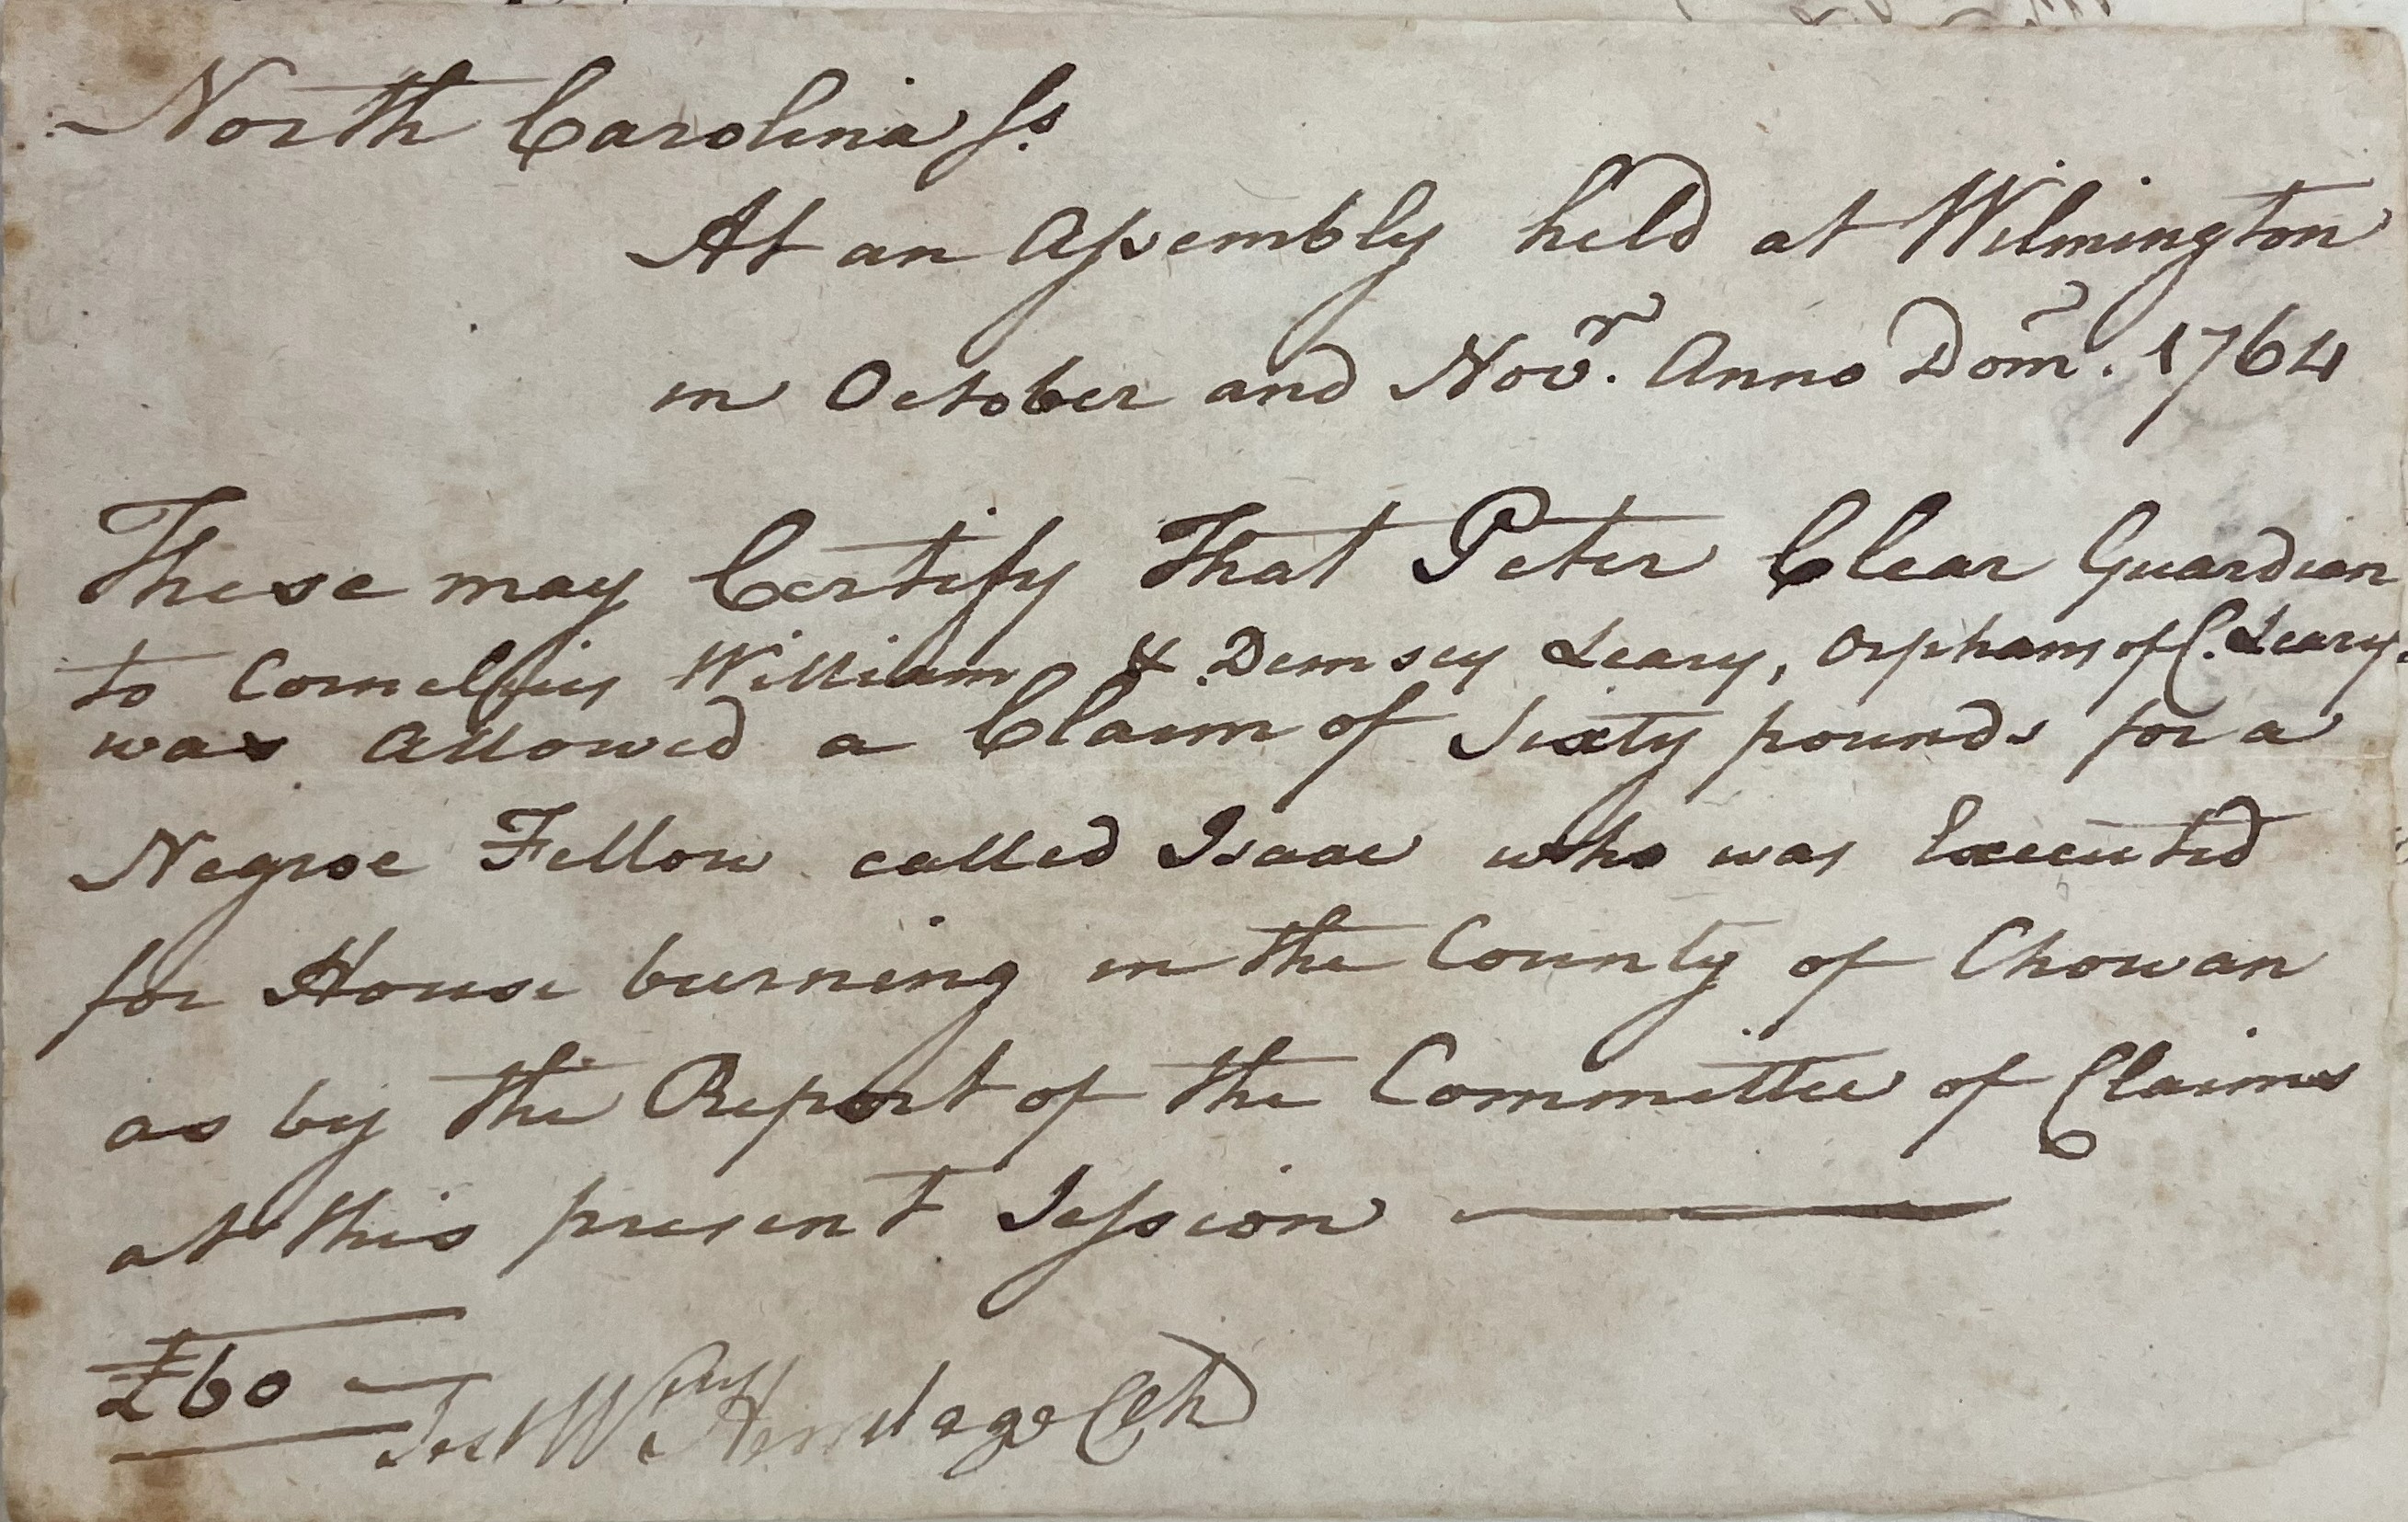 North Carolina ſs.
At an Aſsembly held at Wilmington
in October and Novr. Anno Dom. 1764
These may Certify That Peter Clear Guardian
to Cornelius William & Demsey Leary, Orphans of C. Leary.
was Allowed a Claim of Sixty pounds for a
Negroe Fellow called Isaac who was Executed
for House burning in the County of Chowan
as by the Report of the Committee of Claims
at this present Seſsion
£60
Test Wm Herritage Clk